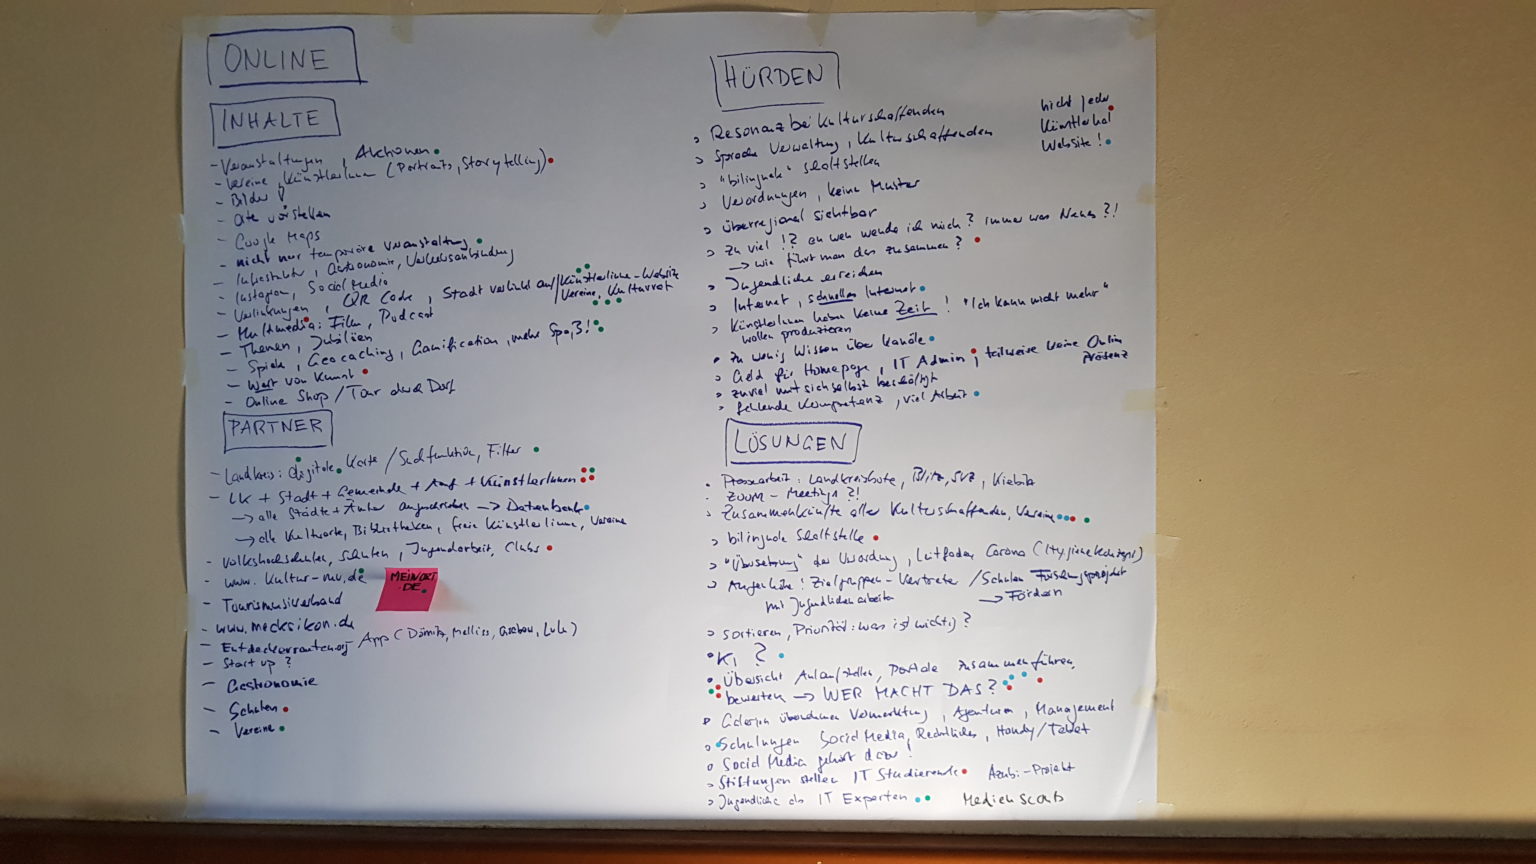 ONLINE
INHALTE
- Veranstaltungen, Aktionen
- Vereine, KünstlerInnen (Portraits, Storytelling)
- Bilder!
- Orte vorstellen
- Google Maps
- nicht nur temporäre Veranstaltung
- Infrastruktur, Gastronomie, Verkehrsanbindung
- Instagram, Social Media
- Verlinkungen, QR Code, Stadt verlinkt auf/KünstlerInnen-Website
Vereine, Kulturort
- Multimedia: Film, Podcast
- Themen, Jubiläen
- Spiele, Geocaching, Gamification, mehr Spaß!
- Wert von Kunst
- Online Shop / Tour durch Dorf
PARTNER
- Landkreis: digitale Karte / Suchfunktion, Filter
- LK + Stadt + Gemeinde + Amt + KünstlerInnen
→ alle Städte + Ämter angeschrieben → Datenbank
→ alle Kulturorte, Bibliotheken, freie KünstlerInnen, Vereine
- Volkshochschulen, Schulen, Jugendarbeit, Clubs
- www.kultur-mv.de
MEINORT
.DE
- Tourismusverband
- www.mecksikon.de
- Entdeckerrouten.org App (Dömitz, Malliss, Grabow, Lulu)
- Start up?
- Gastronomie
- Schulen
- Vereine
HÜRDEN
> Resonanz bei Kulturschaffenden
nicht jeder
Künstler hat
Website!
> Sprache Verwaltung, Kulturschaffenden
> "bilinguale" Schaltstellen
> Verordnungen, keine Muster
> überregional sichtbar
> Zu viel!? an wen wende ich mich? immer was Neues?!
→ Wie führt man das zusammen?
> Jugendliche erreichen
> Internet, schnelles Internet
> KünstlerInnen haben keine Zeit! "Ich kann nicht mehr"
wollen produzieren
• Zu wenig Wissen über Kanäle
> Geld für Homepage, IT Admin, teilweise keine Online
Präsenz
> zuviel mit sich selbst beschäftigt
> fehlende Kompetenz, viel Arbeit
LÖSUNGEN
• Pressearbeit: Landkreisbote, Blitz, SVZ, Kiebitz
• ZOOM-Meetings?!
> Zusammenkünfte aller Kulturschaffenden, Vereine
> bilinguale Schaltstelle
> "Übersetzung" der Verordnung, Leitfaden Corona (Hygienekonzept)
> Augenhöhe! Zielgruppen-Vertreter / Schulen Forschungsprojekt
mit Jugendlichen arbeiten → Fördern
> sortieren, Priorität: was ist wichtig?
• KI?
• Übersicht Anlaufstellen, Portale zusammenführen,
bewerten → WER MACHT DAS?
übernehmen Vermarktung, Agenturen, Management
> Schulungen Social Media, Rechtliches, Handy/Tablet
o Social Media gehört dazu!
> Stiftungen stellen IT Studierende Azubi-Projekt
> Jugendliche als IT Experten Medienscouts